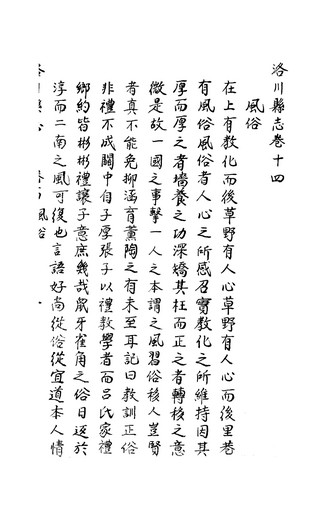 洛川縣志卷十四
風俗
在上有教化而後草野有人心草野有人心而後里巷
有風俗風俗者人心之所感召實教化之所維持因其
厚而厚之者培養之功深矯其枉而正之者轉移之意
微是故一國之事繫一人之本謂之風習俗移人豈賢
者真不能免抑涵育薰陶之有未至耳記曰教訓正俗
非禮不成關中自子厚張子以禮教學者而呂氏家禮
鄉約皆彬彬禮讓子意庶幾哉鼠牙雀角之俗日返於
淳而二南之風可復也言語好尚從俗從宜道本人情
洛川縣志 卷十四 風俗 一